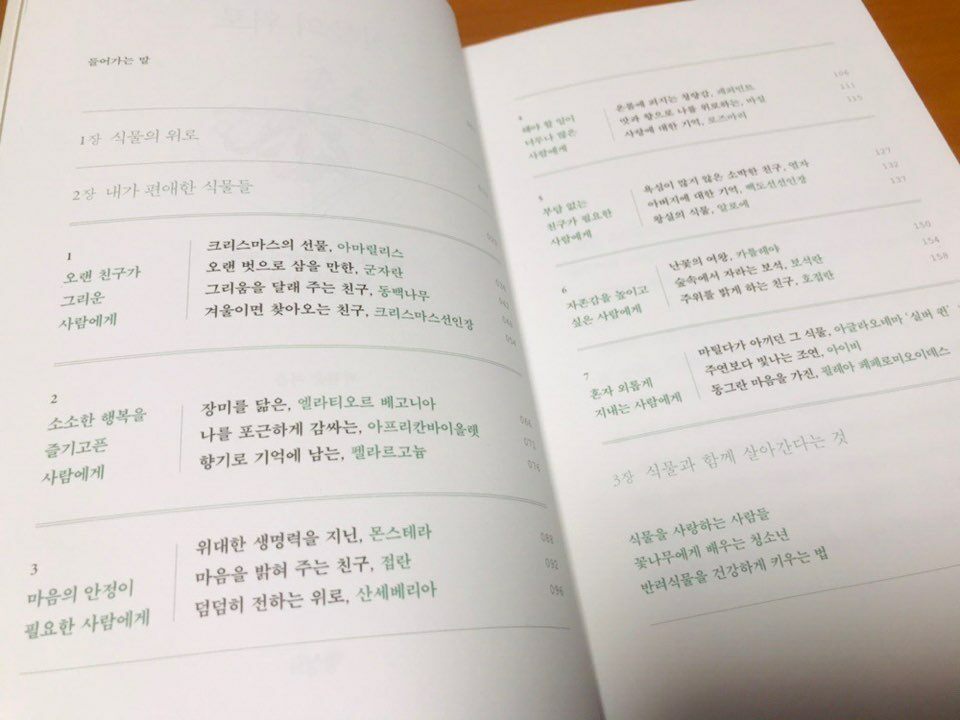 들어가는 말
1장 식물의 위로
2장 내가 편애한 식물들
1
오랜 친구가
그리운
사람에게
크리스마스의 선물, 아마릴리스
오랜 벗으로 삼을 만한, 군자란
그리움을 달래 주는 친구, 동백나무
겨울이면 찾아오는 친구, 크리스마스선인장
054
2
소소한 행복을
즐기고픈
사람에게
장미를 닮은, 엘라티오르 베고니아 066
나를 포근하게 감싸는, 아프리칸바이올렛 072
향기로 기억에 남는, 펠라르고늄 076
3
마음의 안정이
필요한 사람에게
위대한 생명력을 지닌, 몬스테라 088
마음을 밝혀 주는 친구, 접란 092
덤덤히 전하는 위로, 산세베리아 096
4
해야 할 일이
너무나 많은
사람에게
온몸에 퍼지는 청량감, 페퍼민트 106
맛과 향으로 나를 위로하는, 바질 111
사랑에 대한 기억, 로즈마리 115
5
부담 없는
친구가 필요한
사람에게
욕심이 많지 않은 소박한 친구, 염자 127
아버지에 대한 기억, 백도선선인장 132
왕실의 식물, 알로에 137
6
자존감을 높이고
싶은 사람에게
난꽃의 여왕, 카틀레야 150
숲속에서 자라는 보석, 보석란 154
주위를 밝게 하는 친구, 호접란 158
7
혼자 외롭게
지내는 사람에게
마틸다가 아끼던 그 식물, 아글라오네마 '실버 퀸'
주연보다 빛나는 조연, 아이비
동그란 마음을 가진, 필레아 페페로미오이데스
3장 식물과 함께 살아간다는 것
식물을 사랑하는 사람들
꽃나무에게 배우는 청소년
반려식물을 건강하게 키우는 법